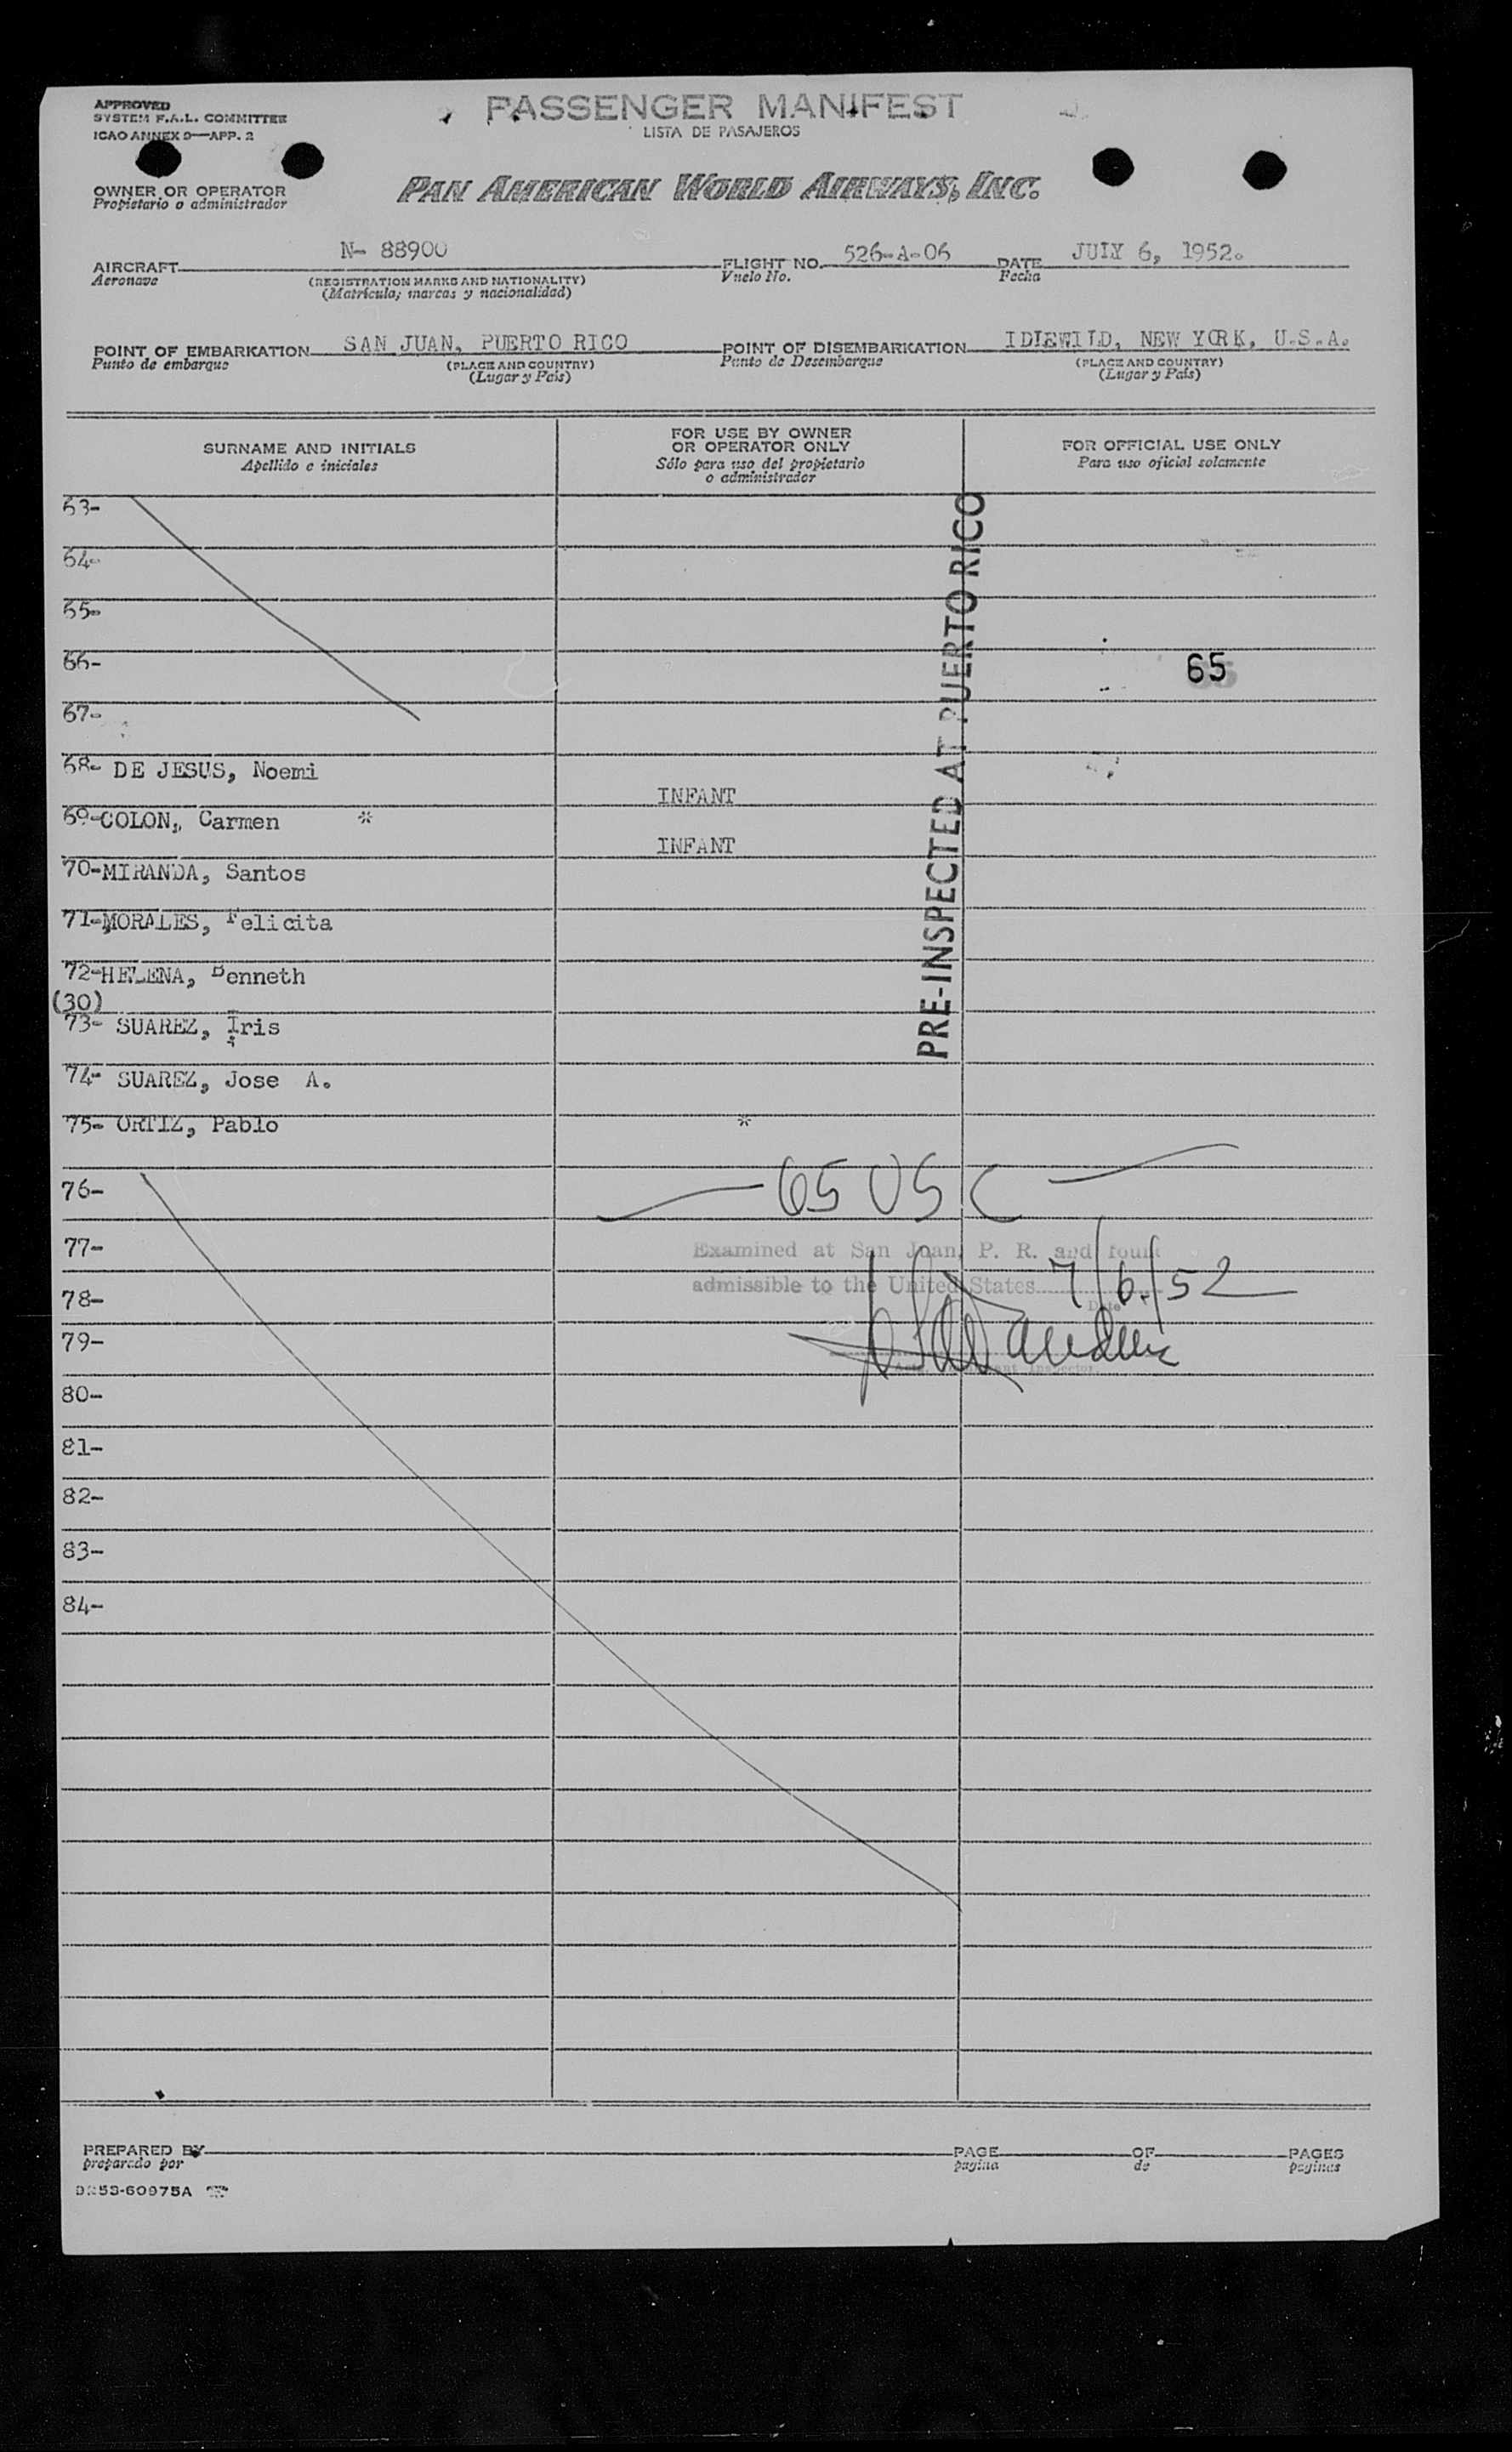 APPROVED
SYSTEM F.A.L. COMMITTEE
ICAO ANNEX 9—APP. 2
PASSENGER MANIFEST
LISTA DE PASAJEROS
OWNER OR OPERATOR
Propietario o administrador
PAN AMERICAN WORLD AIRWAYS, INC.
AIRCRAFT N- 88900 FLIGHT NO. 526-A-06 DATE JULY 6, 1952.
Aeronave (REGISTRATION MARKS AND NATIONALITY) Vuelo No. Fecha
(Matrícula; marcas y nacionalidad)
POINT OF EMBARKATION SAN JUAN, PUERTO RICO POINT OF DISEMBARKATION IDLEWILD, NEW YORK, U.S.A.
Punto de embarque (PLACE AND COUNTRY) Punto de Desembarque (PLACE AND COUNTRY)
(Lugar y País) (Lugar y País)
SURNAME AND INITIALS
Apellido e iniciales
FOR USE BY OWNER
OR OPERATOR ONLY
Sólo para uso del propietario
o administrador
FOR OFFICIAL USE ONLY
Para uso oficial solamente
63-
64-
65-
66- 65
67-
68- DE JESUS, Noemi
INFANT
69-COLON, Carmen *
INFANT
70-MIRANDA, Santos
71-MORALES, Felicita
72-HELENA, Benneth
(30)
73- SUAREZ, Iris
74- SUAREZ, Jose A.
75- ORTIZ, Pablo *
PRE-INSPECTED AT PUERTO RICO
76- 65 USC
77- Examined at San Juan, P. R. and found
admissible to the United States 7/6/52
Date
78-
79-
Inspector
80-
81-
82-
83-
84-
PREPARED BY PAGE OF PAGES
preparado por pagina de paginas